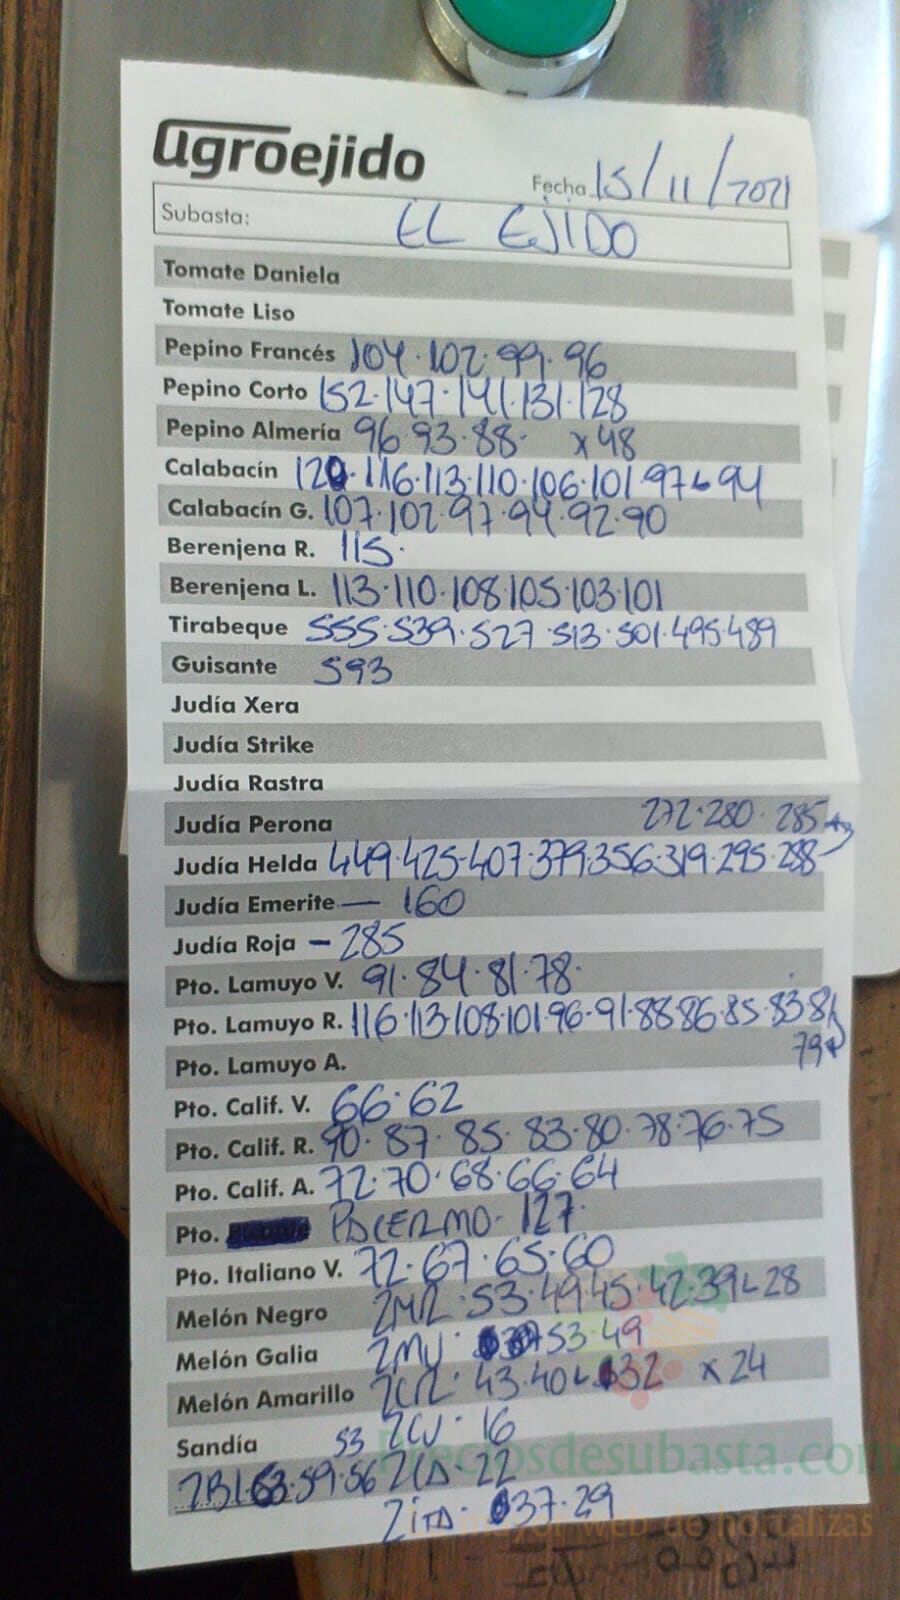 agroejido
Fecha 15/11/2021
Subasta: EL EJIDO
Tomate Daniela
Tomate Liso
Pepino Francés 104·102·99·96
Pepino Corto 152·147·141·131·128
Pepino Almería 96·93·88· x48
Calabacín 120·116·113·110·106·101·97L94
Calabacín G. 107·102·97·94·92·90
Berenjena R. 115·
Berenjena L. 113·110·108·105·103·101
Tirabeque 555·539·527·513·501·495·489
Guisante 593
Judía Xera
Judía Strike
Judía Rastra
Judía Perona 272·280·285
Judía Helda 449·425·407·379·356·319·295·288
Judía Emerite — 160
Judía Roja – 285
Pto. Lamuyo V. 91·84·81·78·
Pto. Lamuyo R. 116·113·108·101·96·91·88·86·85·83·81
79
Pto. Lamuyo A.
Pto. Calif. V. 66·62
Pto. Calif. R. 90·87·85·83·80·78·76·75
Pto. Calif. A. 72·70·68·66·64
Pto. PALERMO· 127·
Pto. Italiano V. 72·67·65·60
Melón Negro ZMR·53·49·45·42·39L28
Melón Galia ZMV· 53·49
Melón Amarillo ZCR·43·40L32 x24
Sandía 53 ZCV·16
ZBl·63·59·56 ZCA·22
ZitA· 37·29
Preciosdesubasta.com
web de hortalizas